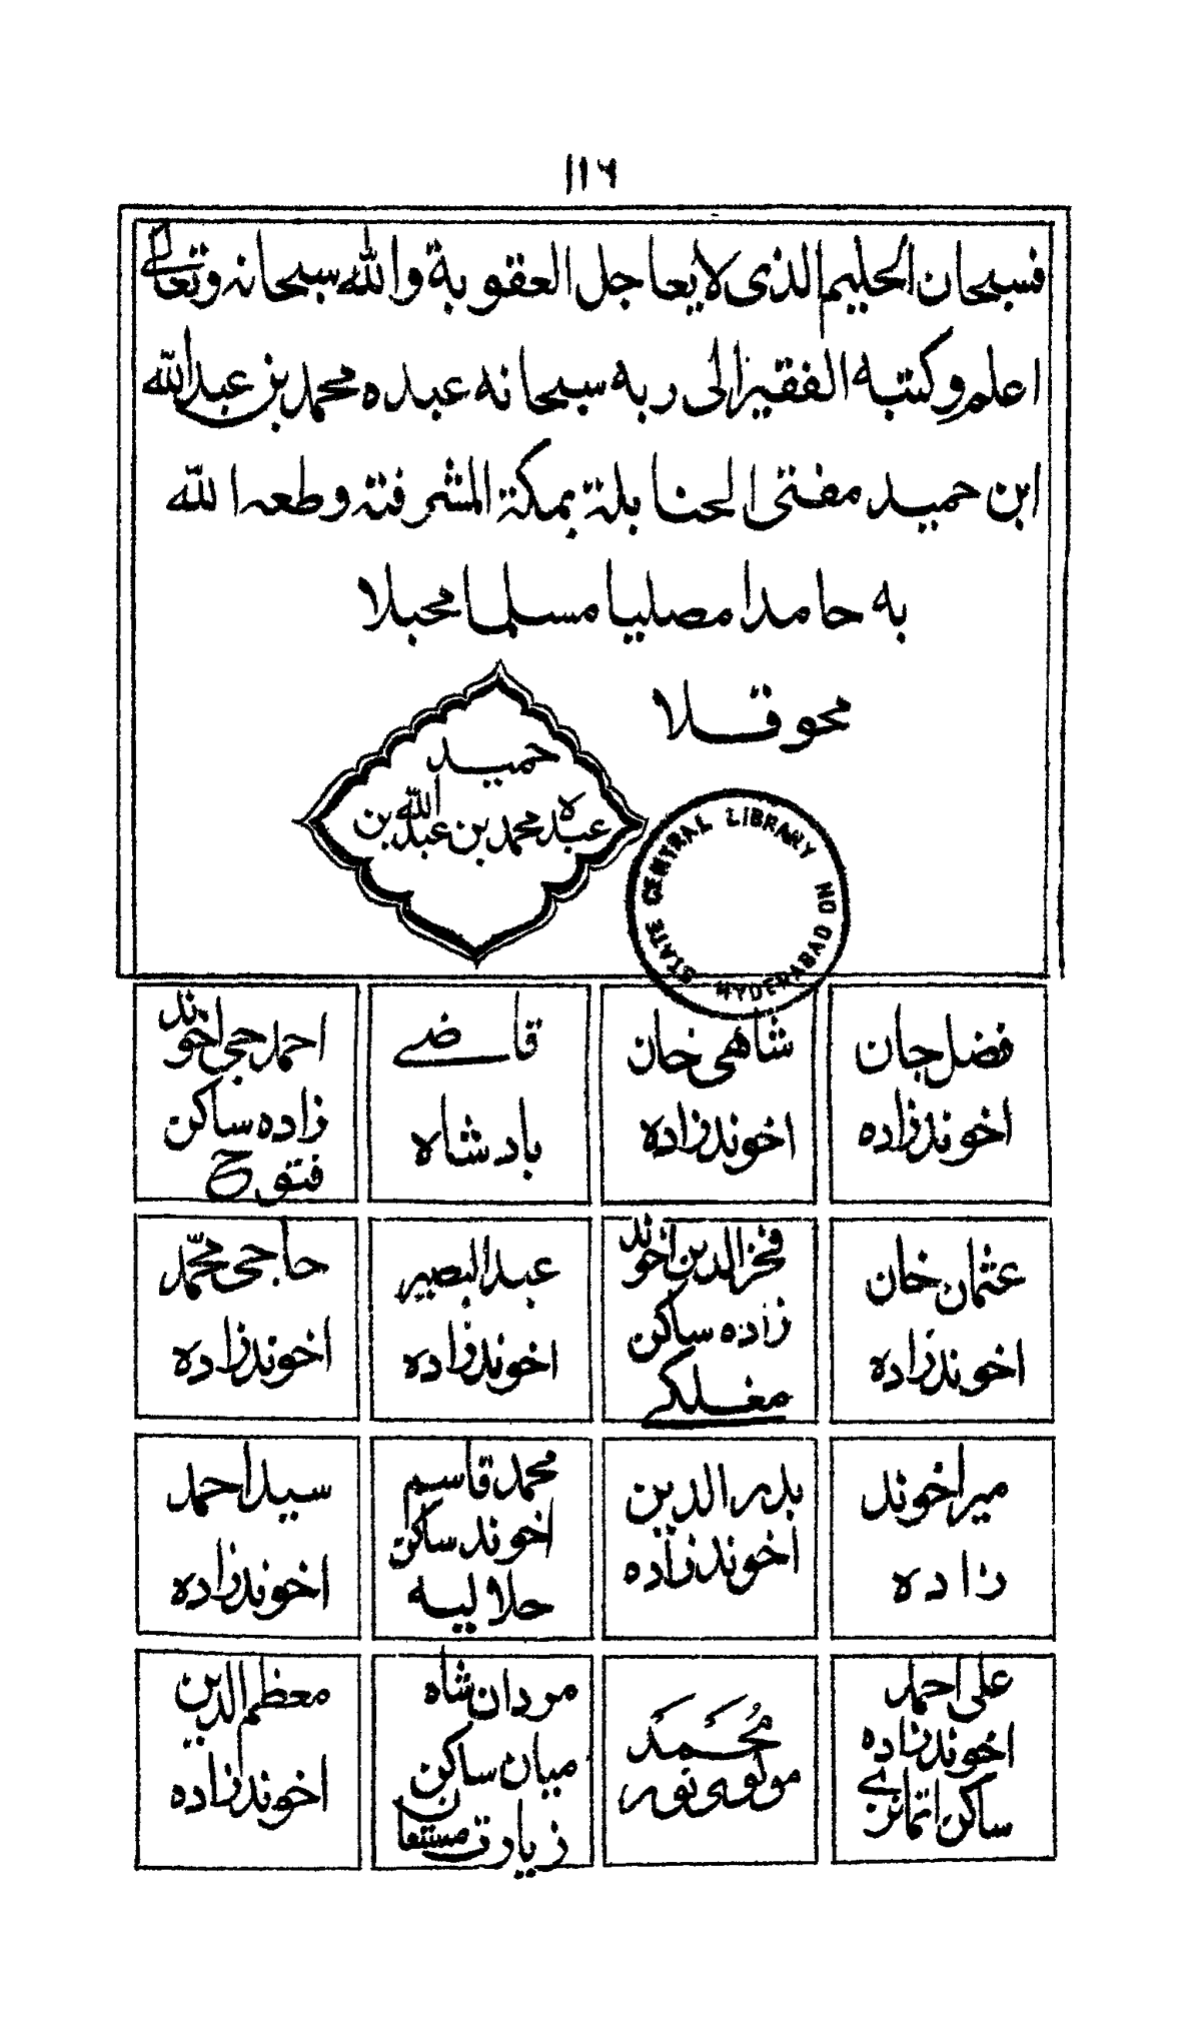 ١١٦
فسبحان الحليم الذى لا يعاجل العقوبة والله سبحانه وتعالى
اعلم وكتبه الفقير الى ربه سبحانه عبده محمد بن عبدالله
ابن حميد مفتى الحنابلة بمكة المشرفته وطعه الله
به حامدا مصليا مسلما محبلا
محوقلا
حميد
عبده محمد بن عبدالله بن
STATE CENTRAL LIBRARY
HYDERABAD
فضل جان
اخوندزاده
شاهى خان
اخوندزاده
قاضے
بادشاه
احمد جى اخوند
زاده ساكن
فتوح
عثمان خان
اخوندزاده
فخرالدين اخوند
زاده ساكن
مغلكے
عبدالبصير
اخوندزاده
حاجى محمّد
اخوندزاده
مير اخوند
زاده
بدر الدين
اخوندزاده
محمد قاسم
اخوند ساكن
جلاليه
سيد احمد
اخوندزاده
على احمد
اخوندزاده
ساكن
مُحَمَد
مولوى نور
مردان شاه
ميان ساكن
زيارت
معظم الدين
اخوندزاده